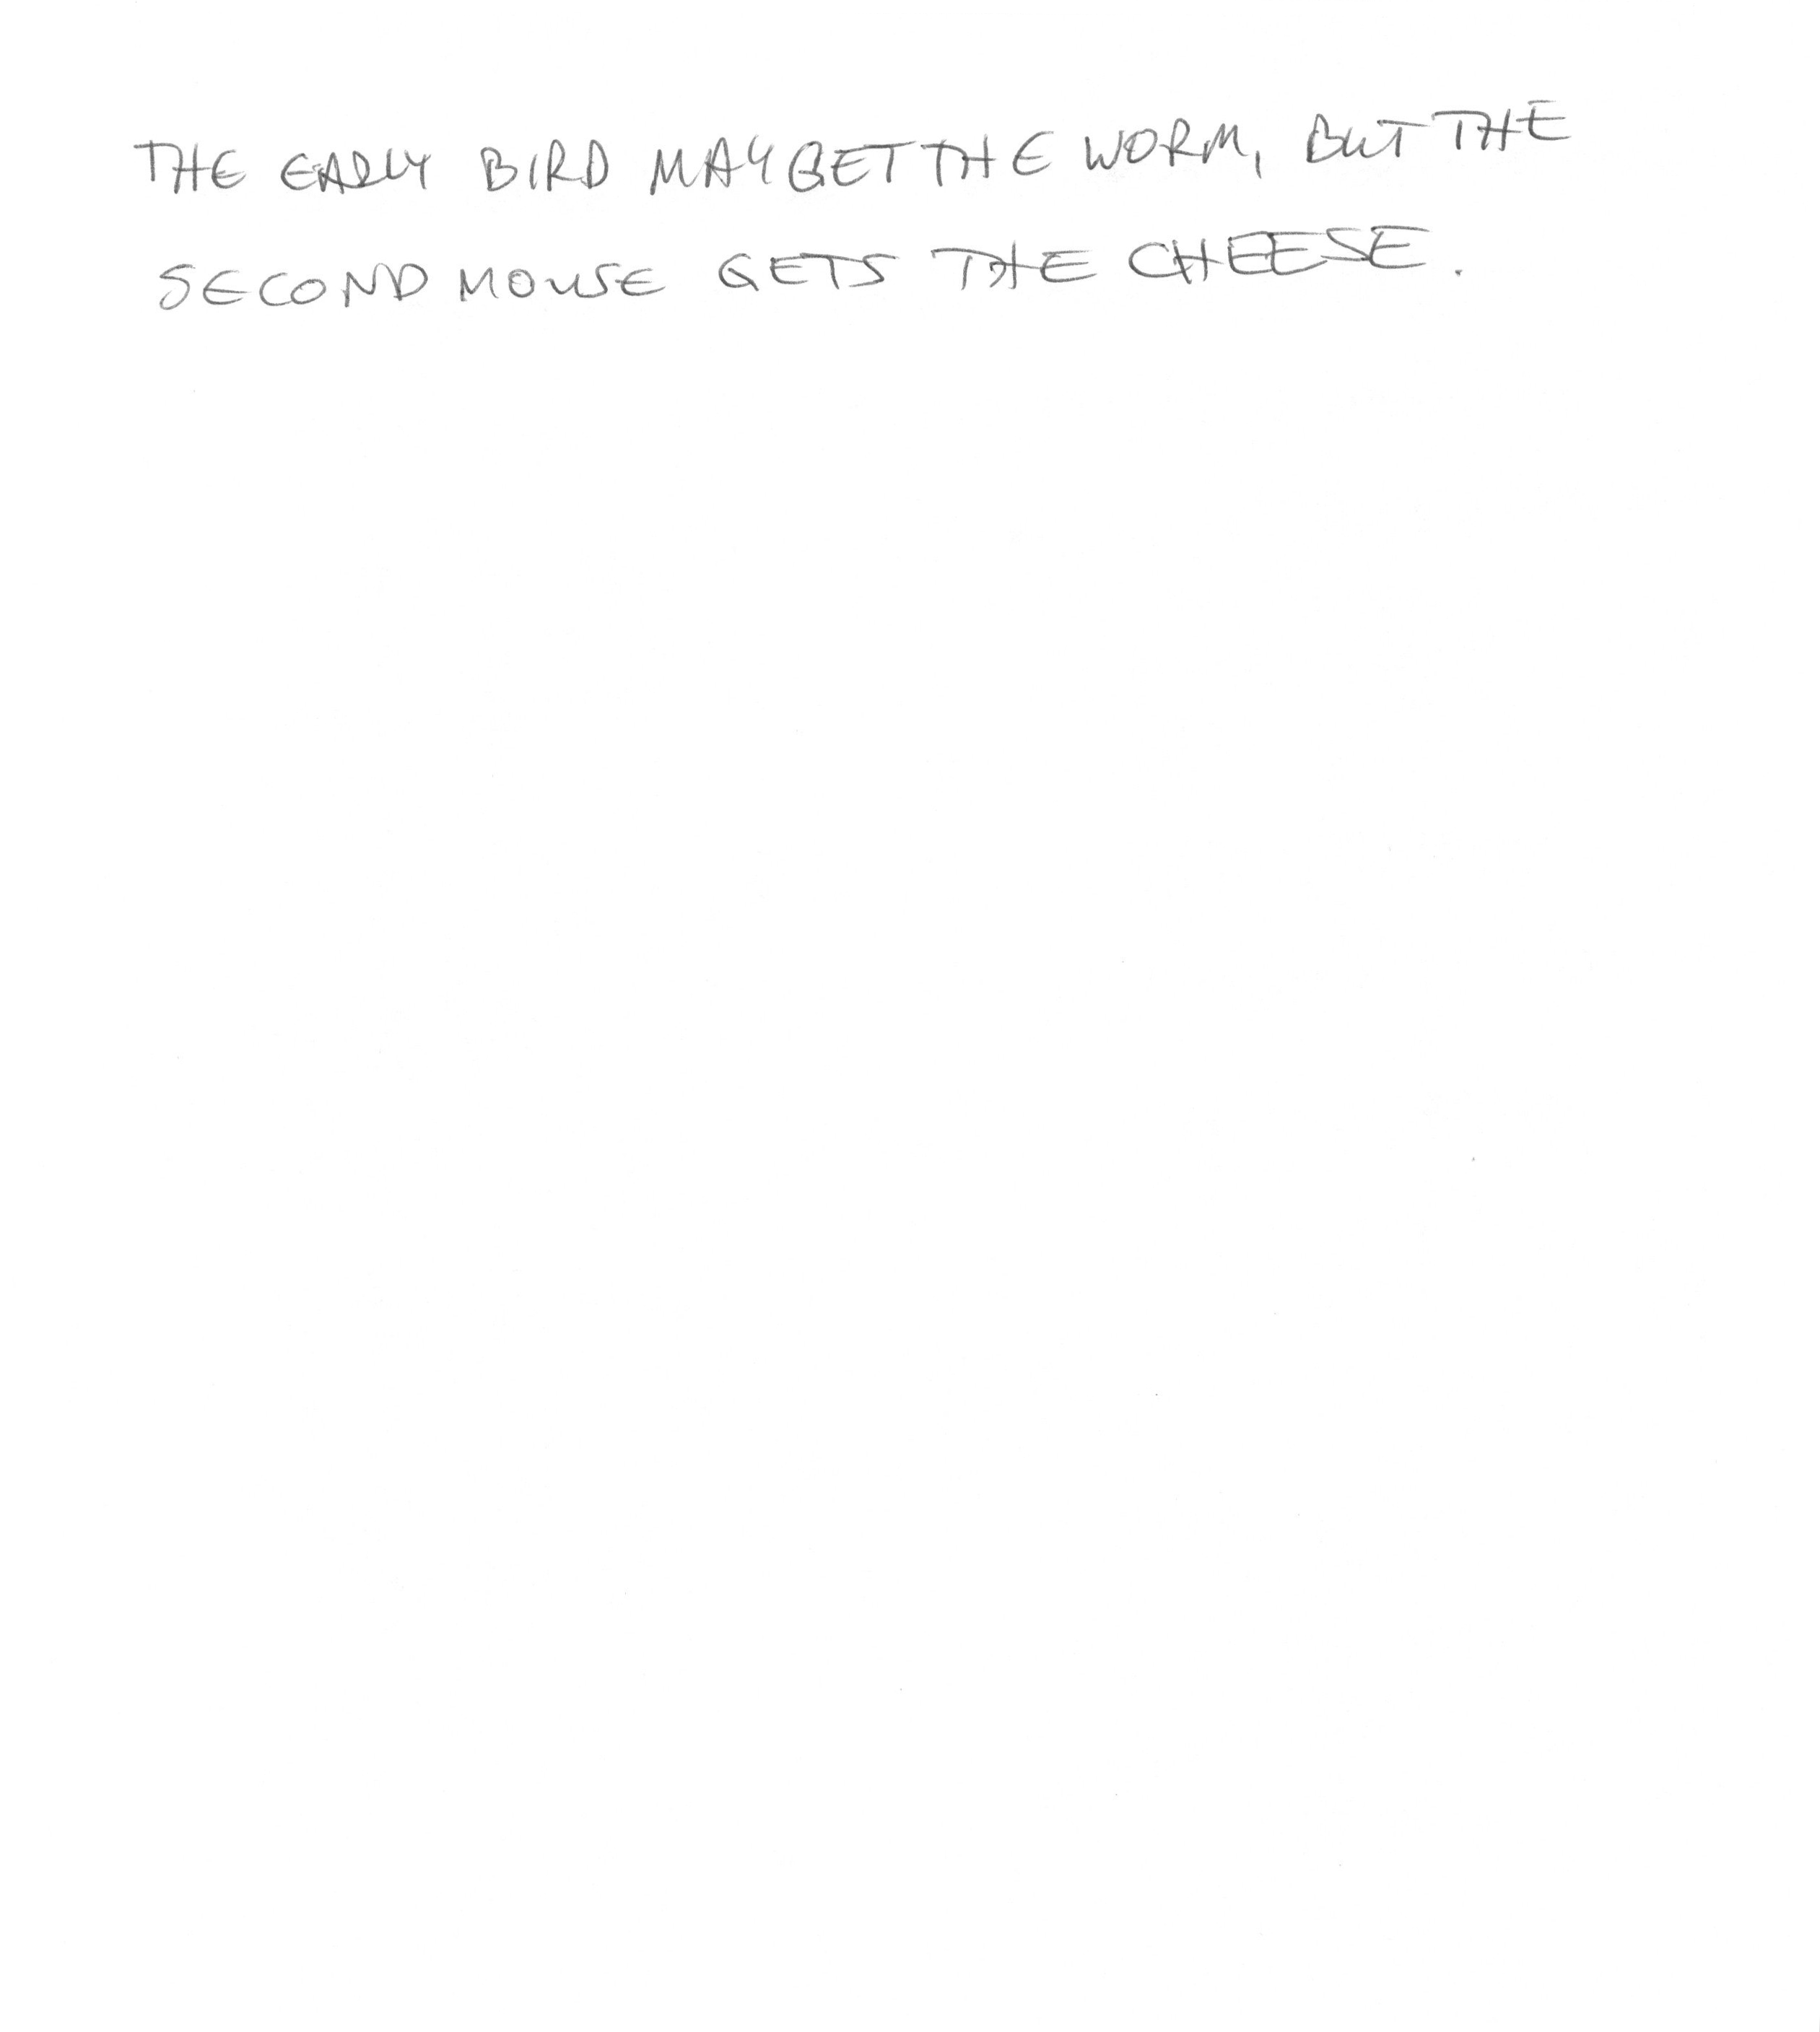 THE EARLY BIRD MAY GET THE WORM, BUT THE
SECOND MOUSE GETS THE CHEESE.